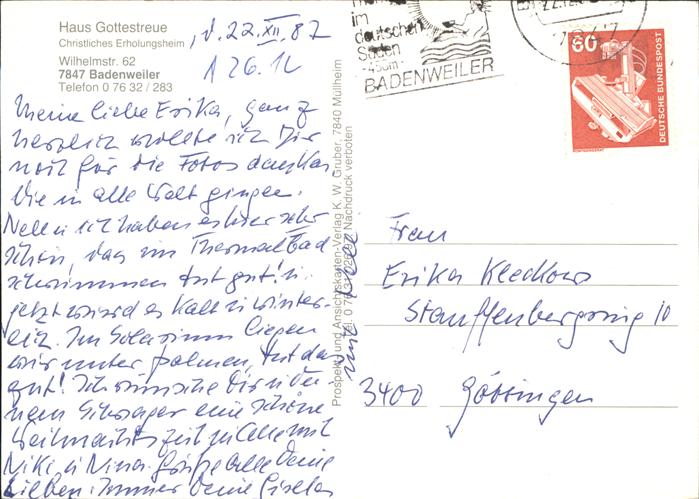 Haus Gottestreue
Christliches Erholungsheim
Wilhelmstr. 62
7847 Badenweiler
Telefon 0 76 32 / 283
, d. 22.XII.82
Meine liebe Erika, ganz
herzlich wollte ich Dir
noch für die Fotos danken
die in alle Welt gingen.
Nelli u. ich haben es hier sehr
schön, das im Thermalbad
schwimmen tut gut! u.
jetzt wird es kalt u. winter-
lich. Im Solarium liegen
wir unter Palmen, tut das
gut! Ich wünsche Dir u. Dei-
nem Schwager eine schöne
Weihnachtszeit in Celle mit
Niki u. Nina. Grüße alle Deine
Lieben. Immer Deine Gisela
und
Prospekt- und Ansichtskarten-Verlag K. W. Gruber, 7840 Müllheim
Nachdruck verboten
im
deutschen
Süden
BADENWEILER
60
DEUTSCHE BUNDESPOST
Frau
Erika Kleckow
Stauffenbergring 10
3400 Göttingen